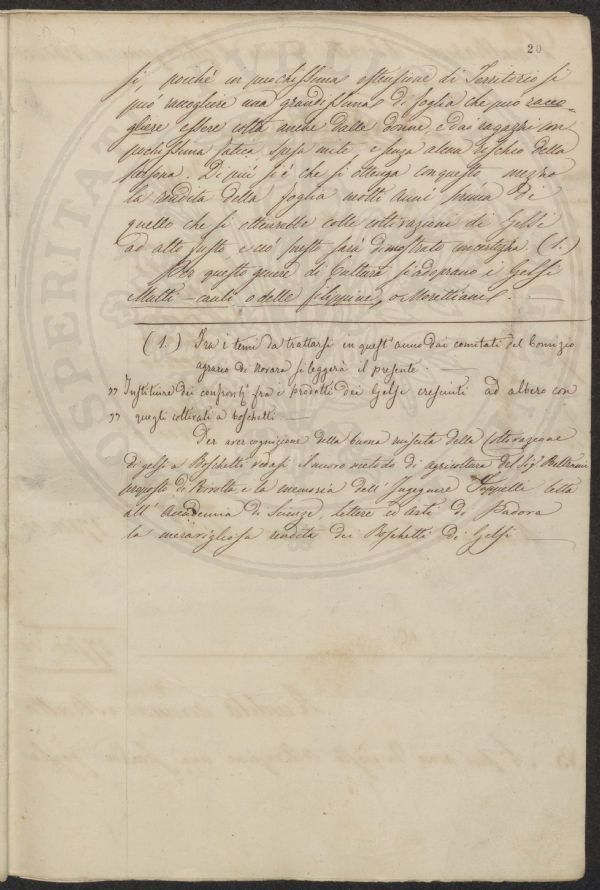 20
si, poiché in pochissima estensione di Territorio si
può raccogliere una grandissima di foglia che può racco=
gliere essere colta anche dalle donne, e dai ragazzi con
pochissima fatica spesa mite e senza alcun rischio della
persona. Di più si è che si ottenga con questo mezzo
la rendita della foglia molti anni prima di
quello che si otterrebbe colle coltivazioni di Gelsi
ad alto fusto e ciò presto sarà dimostrato con certezza. (1.)
Per questo genere di Cultura si adoprano i Gelsi
Multi-cauli o delle filippine, o Morettiane. —
(1.) Fra i temi da trattarsi in quest'anno dai comitati del Comizio
agrario di Novara si leggerà il presente. —
" Instituire dei confronti fra i prodotti dei Gelsi cresciuti ad albero con
" quegli coltivati a boschetti —
Per aver cognizione della buona riuscita della Coltivazione
di gelsi a Boschetti vedasi il nuovo metodo di agricoltura del Sig.r Beltrami
proposto di Rivolta e la memoria dell'Ingegnere letta
all'Accademia di Scienze, lettere ed arti di Padova
la meravigliosa rendita dei Boschetti di Gelsi —